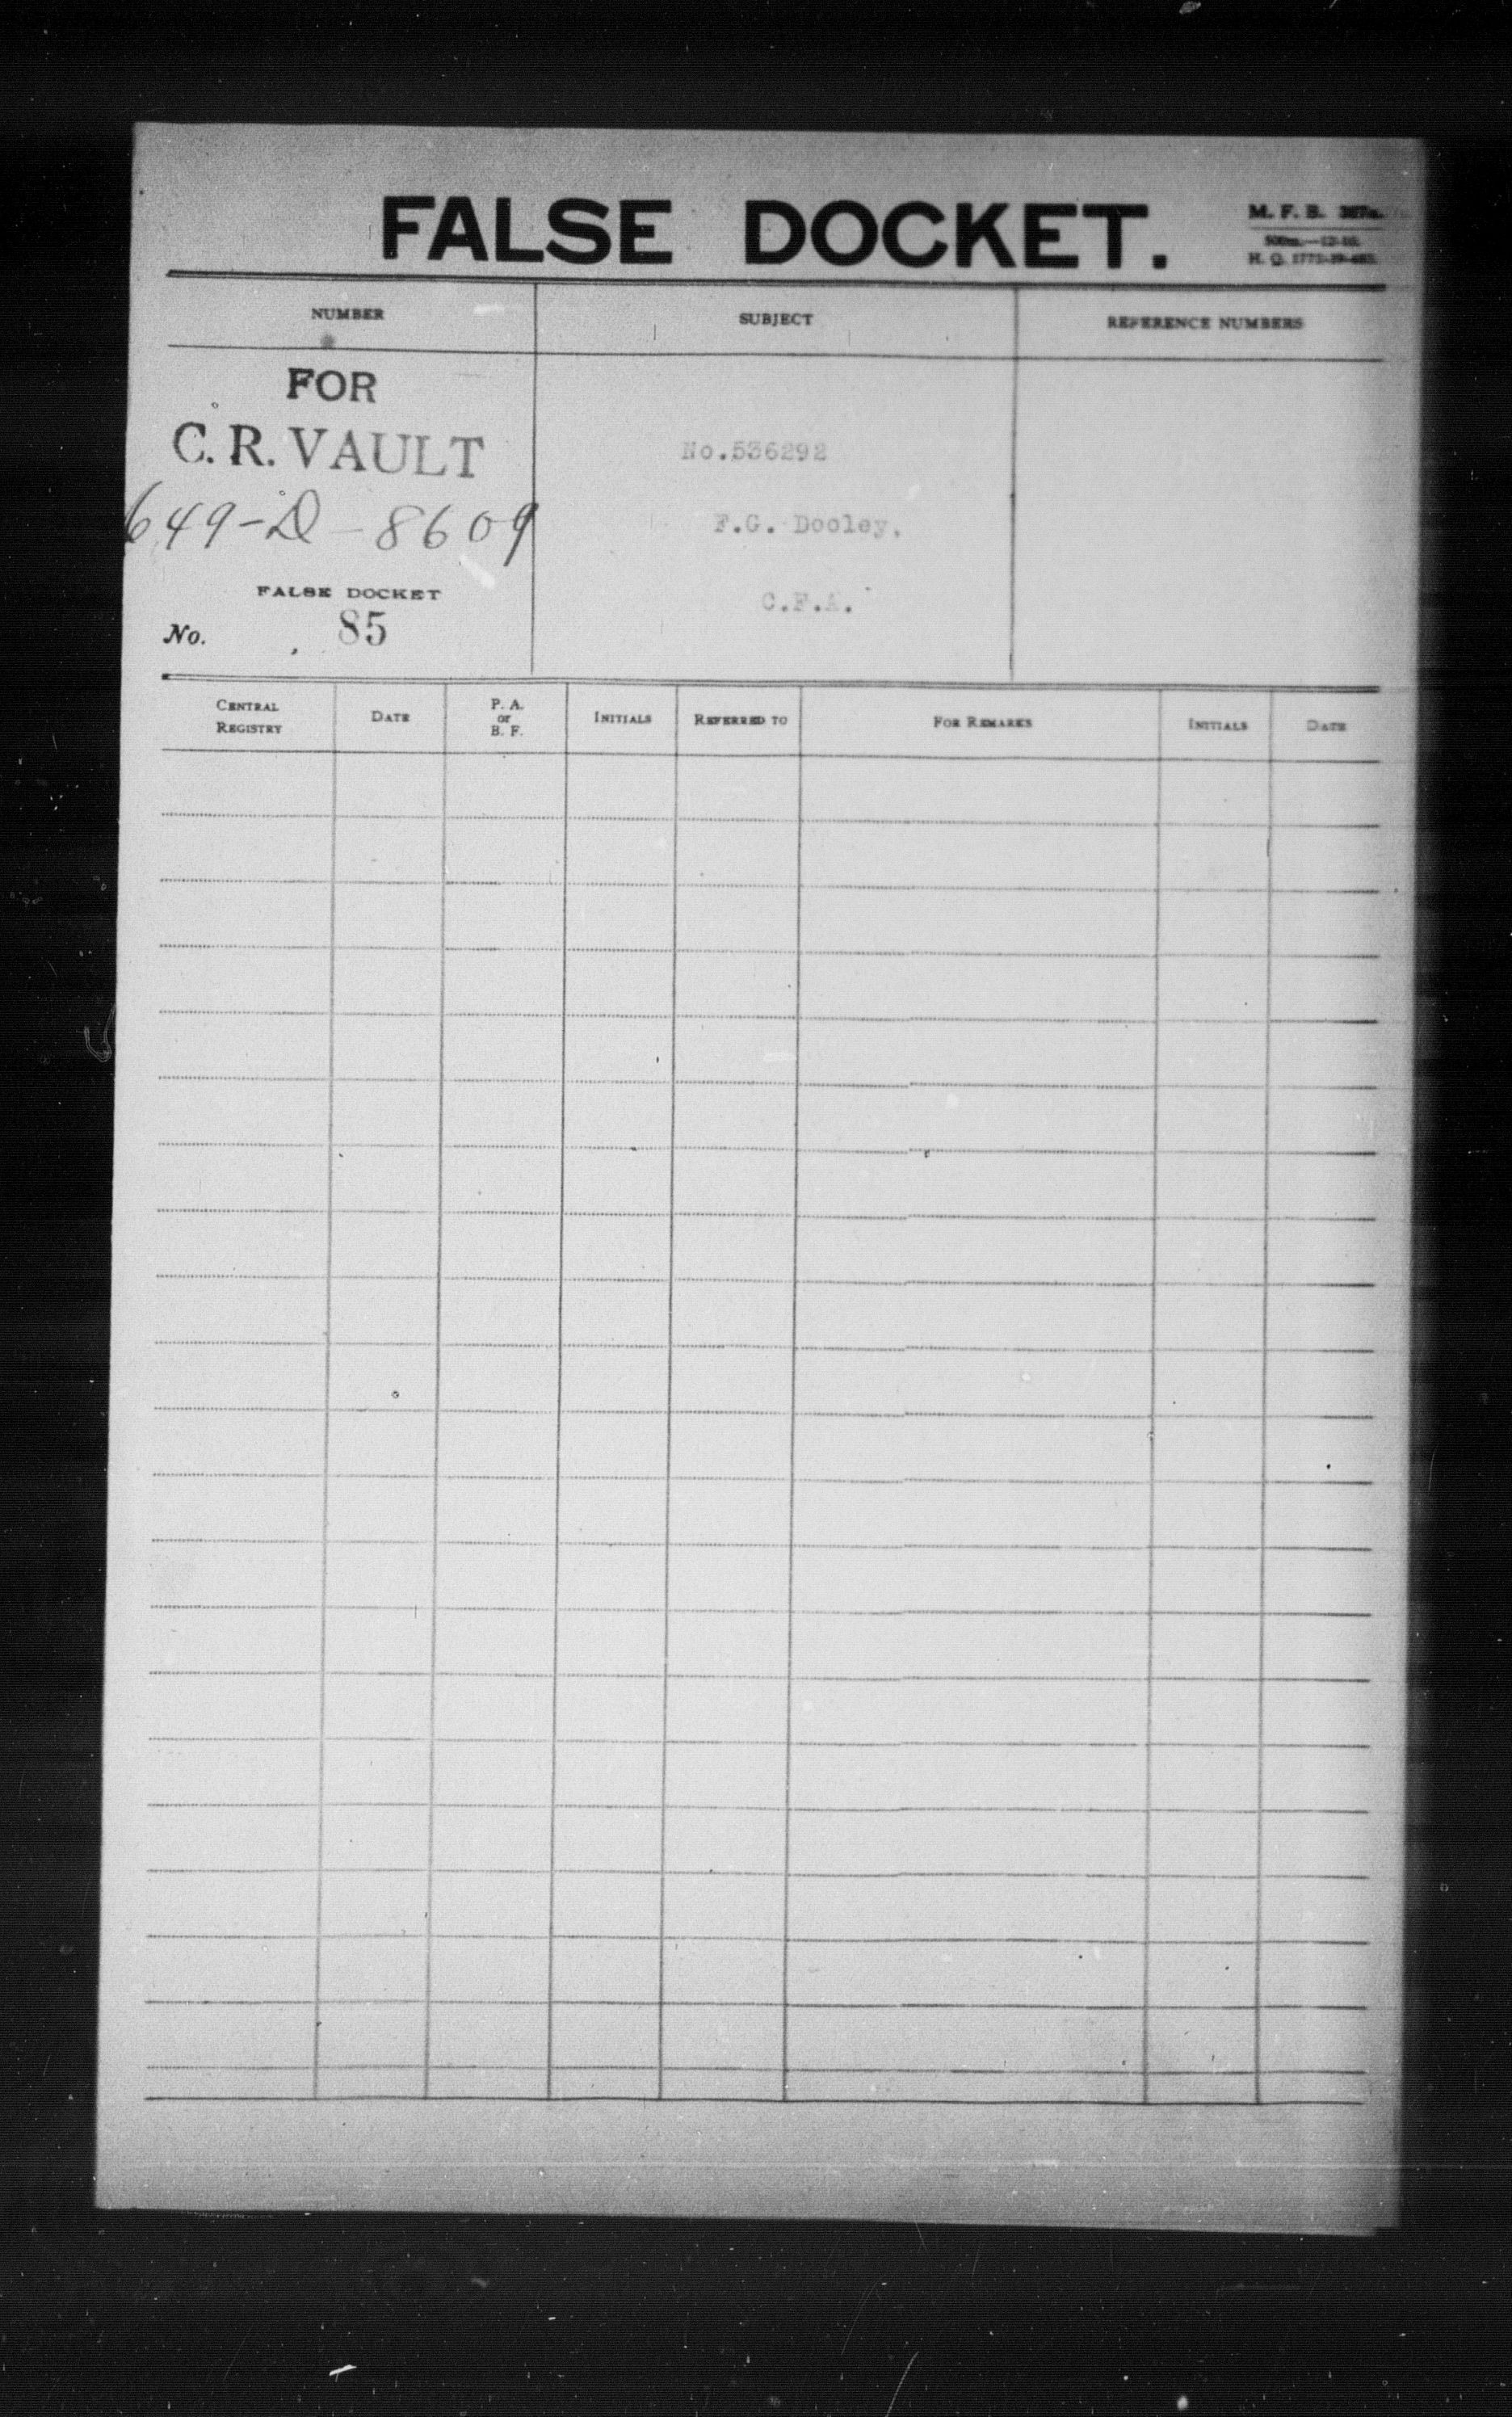 FALSE DOCKET.
M. F. B.
H. Q.
NUMBER
SUBJECT
REFERENCE NUMBERS
FOR
C. R. VAULT
649-D-8609
FALSE DOCKET
No. 85
No.536292
F.G. Dooley,
C.F.A.
CENTRAL REGISTRY
DATE
P. A. or B. F.
INITIALS
REFERRED TO
FOR REMARKS
INITIALS
DATE